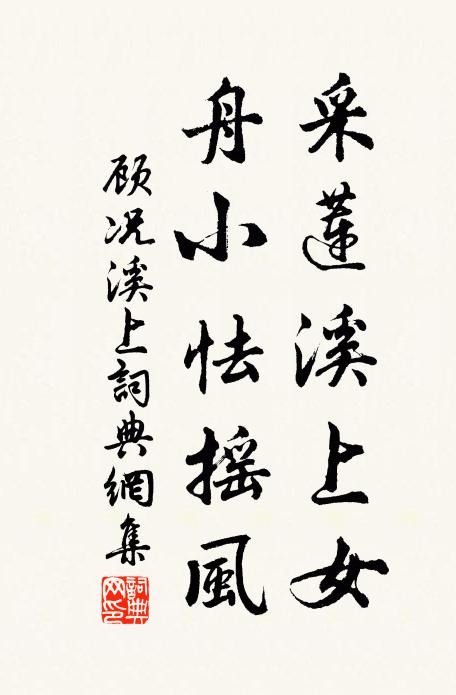 采蓮溪上女
舟小怯摇風
顾况溪上詞典網集
詞典网印